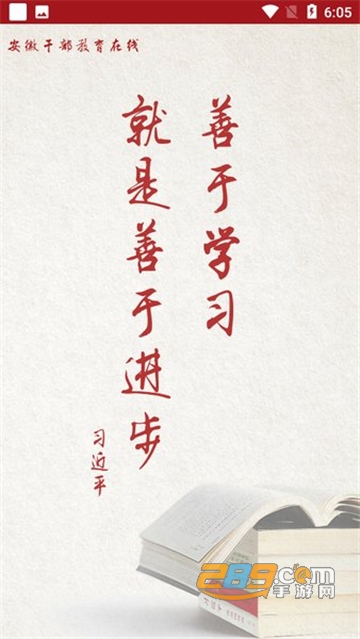 6:05
安徽干部教育在线
善于学习
就是善于进步
习近平
289.com
手游网